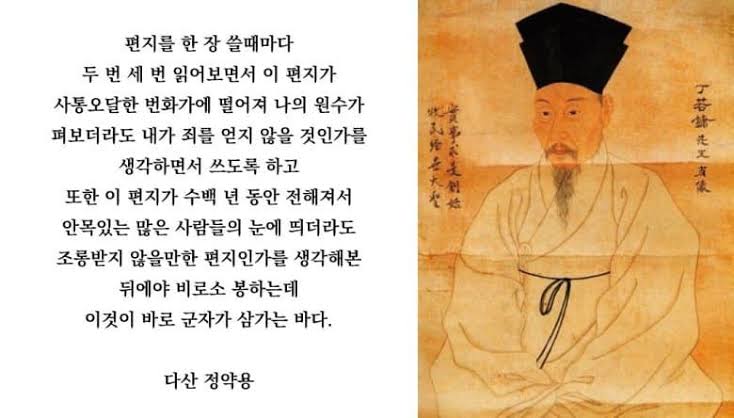 편지를 한 장 쓸때마다
두 번 세 번 읽어보면서 이 편지가
사통오달한 번화가에 떨어져 나의 원수가
펴보더라도 내가 죄를 얻지 않을 것인가를
생각하면서 쓰도록 하고
또한 이 편지가 수백 년 동안 전해져서
안목있는 많은 사람들의 눈에 띄더라도
조롱받지 않을만한 편지인가를 생각해본
뒤에야 비로소 봉하는데
이것이 바로 군자가 삼가는 바다.
다산 정약용
丁若鏞先生肖像
實事求是創始
牧民